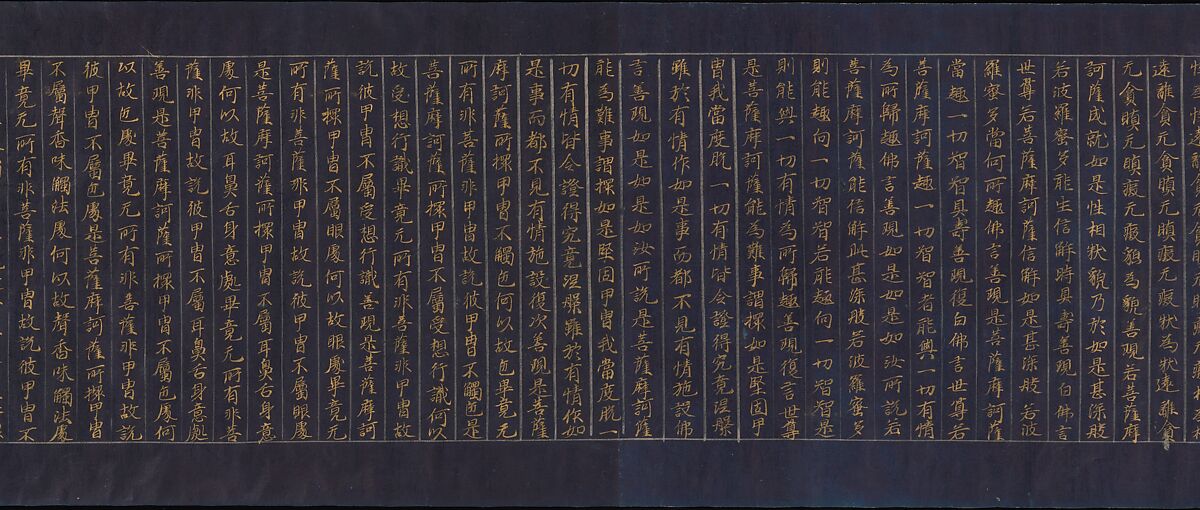 遠離貪无貪瞋无瞋癡无癡狀為狀遠離貪
无貪瞋无瞋癡无癡貌為貌善現若菩薩摩
訶薩成就如是性相狀貌乃於如是甚深般
若波羅蜜多能生信解時具壽善現白佛言
世尊若菩薩摩訶薩信解如是甚深般若波
羅蜜多當何所趣佛言善現是菩薩摩訶薩
當趣一切智智具壽善現復白佛言世尊若
菩薩摩訶薩趣一切智智者能與一切有情
為所歸趣佛言善現如是如是如汝所說若
菩薩摩訶薩能信解此甚深般若波羅蜜多
則能趣向一切智智若能趣向一切智智是
則能與一切有情為所歸趣善現復言世尊
是菩薩摩訶薩能為難事謂擐如是堅固甲
冑我當度脫一切有情皆令證得究竟涅槃
雖於有情作如是事而都不見有情施設佛
言善現如是如是如汝所說是菩薩摩訶薩
能為難事謂擐如是堅固甲冑我當度脫一
切有情皆令證得究竟涅槃雖於有情作如
是事而都不見有情施設復次善現是菩薩
摩訶薩所擐甲冑不屬色何以故色畢竟无
所有非菩薩非甲冑故說彼甲冑不屬色是
菩薩摩訶薩所擐甲冑不屬受想行識何以
故受想行識畢竟无所有非菩薩非甲冑故
說彼甲冑不屬受想行識善現是菩薩摩訶
薩所擐甲冑不屬眼處何以故眼處畢竟无
所有非菩薩非甲冑故說彼甲冑不屬眼處
是菩薩摩訶薩所擐甲冑不屬耳鼻舌身意
處何以故耳鼻舌身意處畢竟无所有非菩
薩非甲冑故說彼甲冑不屬耳鼻舌身意處
善現是菩薩摩訶薩所擐甲冑不屬色處何
以故色處畢竟无所有非菩薩非甲冑故說
彼甲冑不屬色處是菩薩摩訶薩所擐甲冑
不屬聲香味觸法處何以故聲香味觸法處
畢竟无所有非菩薩非甲冑故說彼甲冑不